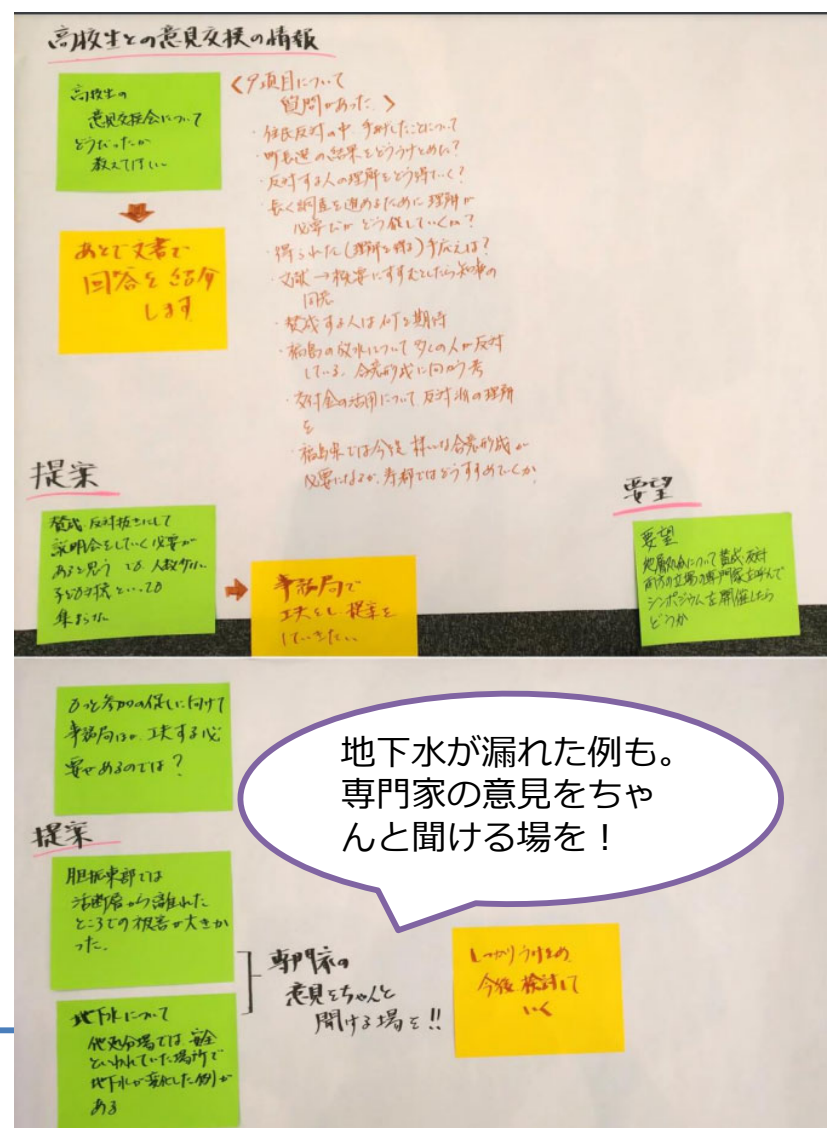 高校生との意見交換の情報
高校生の
意見交換会について
どうだったか
教えてほしい
あとで文書で
回答を紹介
します
〈9項目について
質問があった〉
・住民反対の中、手挙げしたことについて
・町長選の結果をどううけとめた?
・反対する人の理解をどう得ていく?
・長く調査を進めるために理解が
必要だがどう催していくか?
・得られた(理解を得る)手応えは?
・文献→概要にすすむとしたら知事の
同意
・賛成する人は何を期待
・福島の放水について多くの人が反対
している。合意形成に向かう考
・交付金の活用について反対派の理解
を
・福島県では今後様々な合意形成が
必要になるが、寿都ではどうすすめていくか
提案
賛成、反対抜きにして
説明会をしていく必要が
あると思う でも人数少ない
子ども対様といっても
集まらない
事務局で
工夫をし、提案を
していきたい
要望
要望
地層処分について賛成、反対
両方の立場の専門家を呼んで
シンポジウムを開催したら
どうか
もっと参加の促しに向けて
事務局ほか、工夫する必
要があるのでは?
提案
胆振東部では
活断層から離れた
ところでの被害が大きか
った。
地下水について
他処分場では安全
といわれていた場所で
地下水が変化した例が
ある
専門家の
意見をちゃんと
聞ける場を!!
地下水が漏れた例も。
専門家の意見をちゃ
んと聞ける場を!
しっかりうけとめ
今後検討して
いく